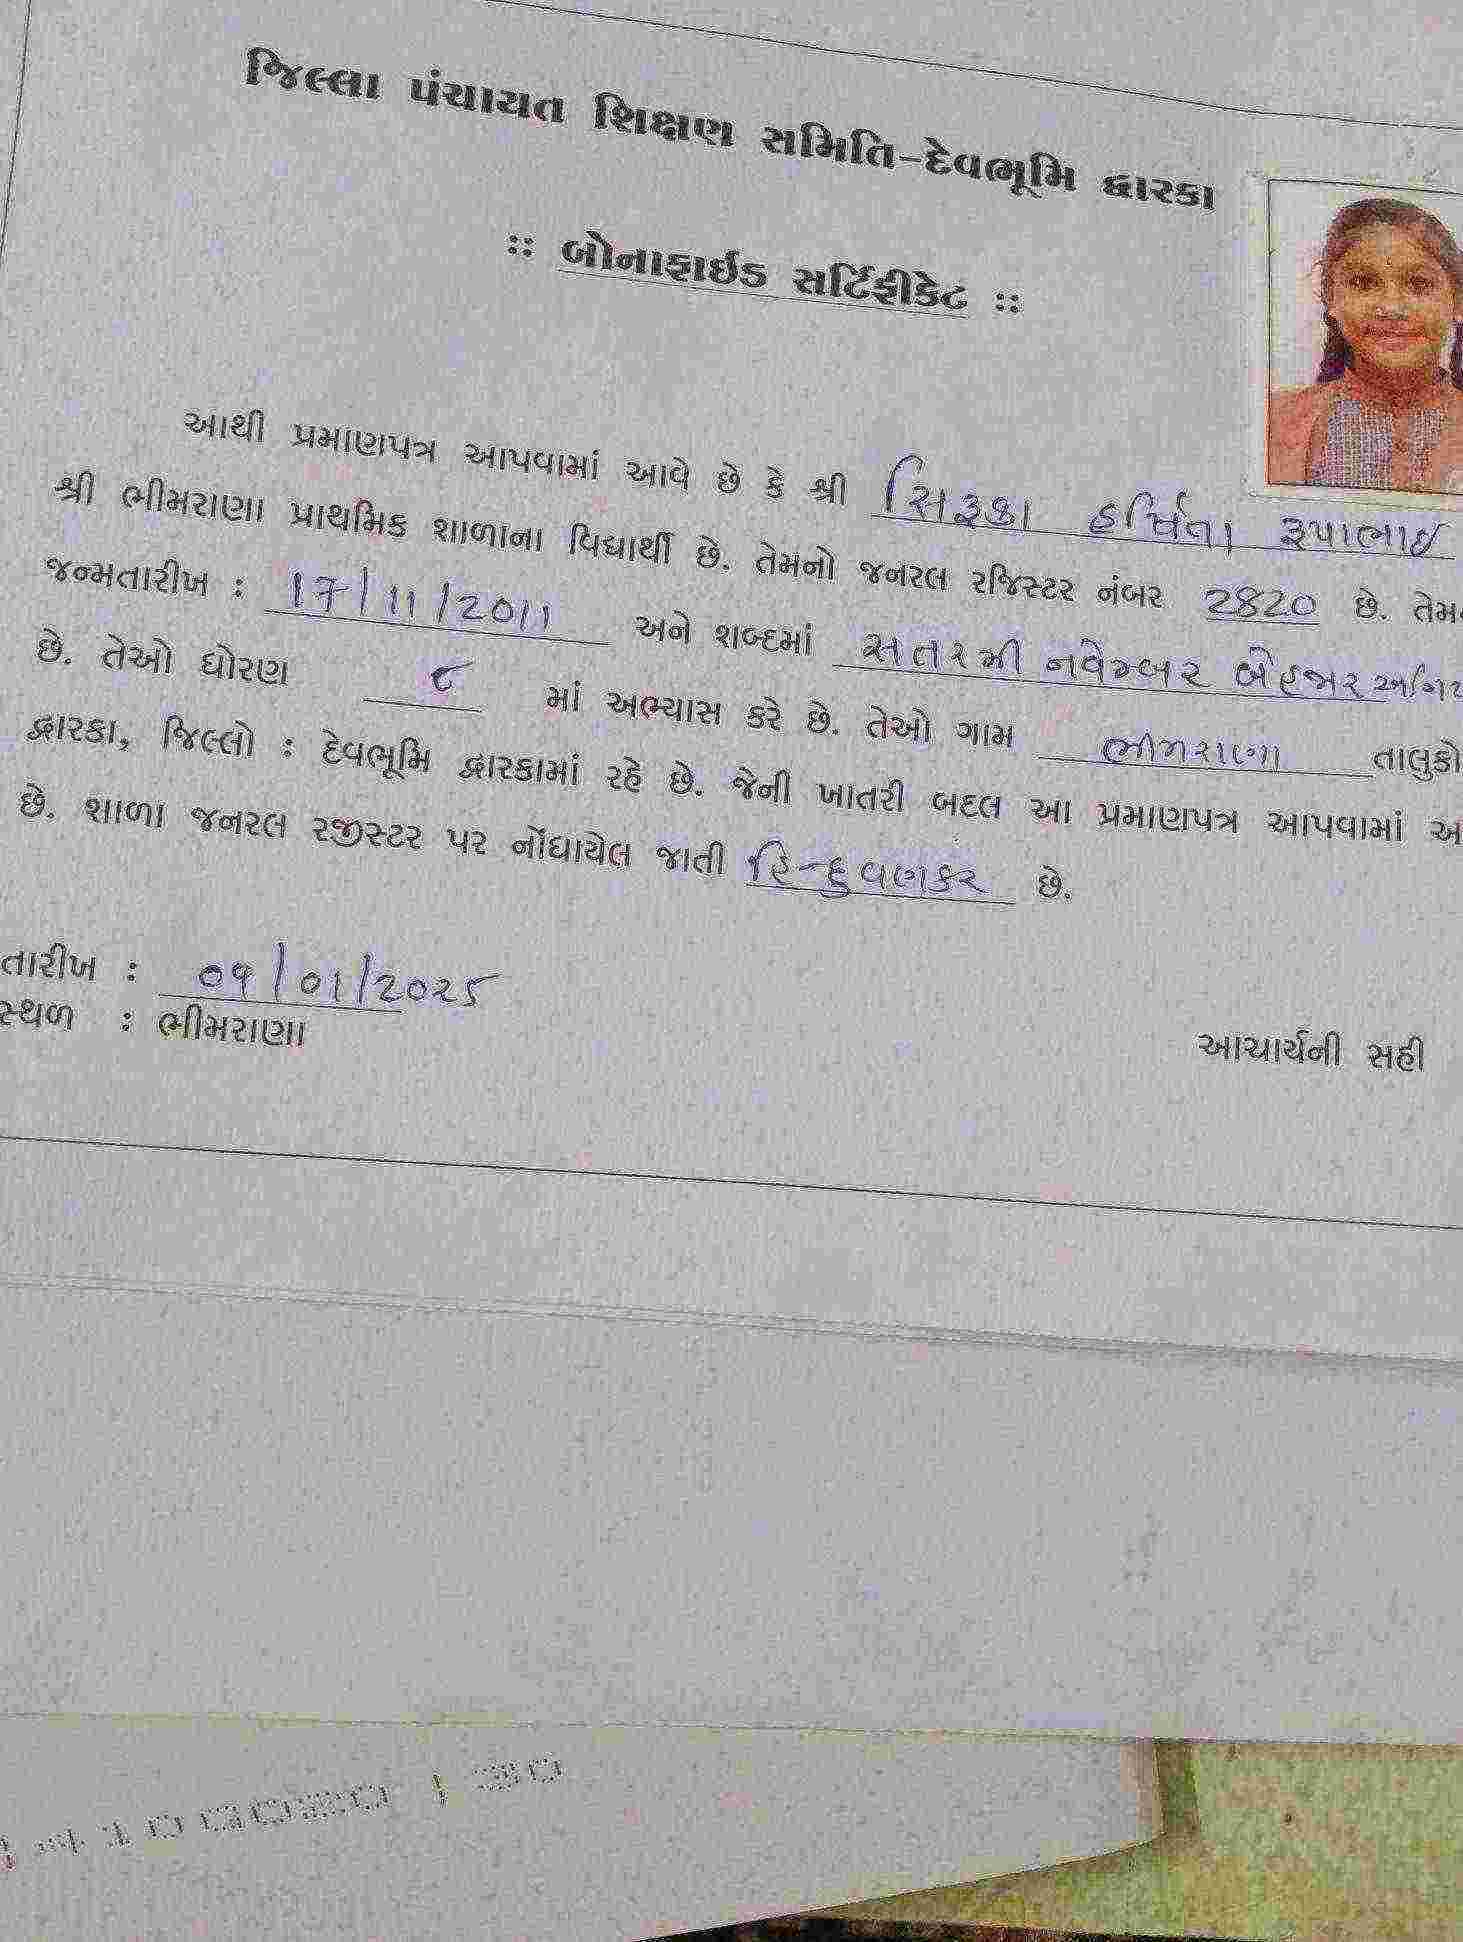 જિલ્લા પંચાયત શિક્ષણ સમિતિ-દેવભૂમિ દ્વારકા
:: બોનાફાઈડ સર્ટિફીકેટ ::
આથી પ્રમાણપત્ર આપવામાં આવે છે કે શ્રી સિરૂકા હર્ષિતા રૂપાભાઇ
શ્રી ભીમરાણા પ્રાથમિક શાળાના વિદ્યાર્થી છે. તેમનો જનરલ રજિસ્ટર નંબર 2820 છે. તેમ
જન્મતારીખ : 17/11/2011 અને શબ્દમાં સતરમી નવેમ્બર બેહજાર અગિ
છે. તેઓ ધોરણ ૮ માં અભ્યાસ કરે છે. તેઓ ગામ ભીમરાણા તાલુકો
દ્વારકા, જિલ્લો : દેવભૂમિ દ્વારકામાં રહે છે. જેની ખાતરી બદલ આ પ્રમાણપત્ર આપવામાં આ
છે. શાળા જનરલ રજીસ્ટર પર નોંધાયેલ જાતી હિન્દુવણકર છે.
તારીખ : 09/01/2025
સ્થળ : ભીમરાણા
આચાર્યની સહી